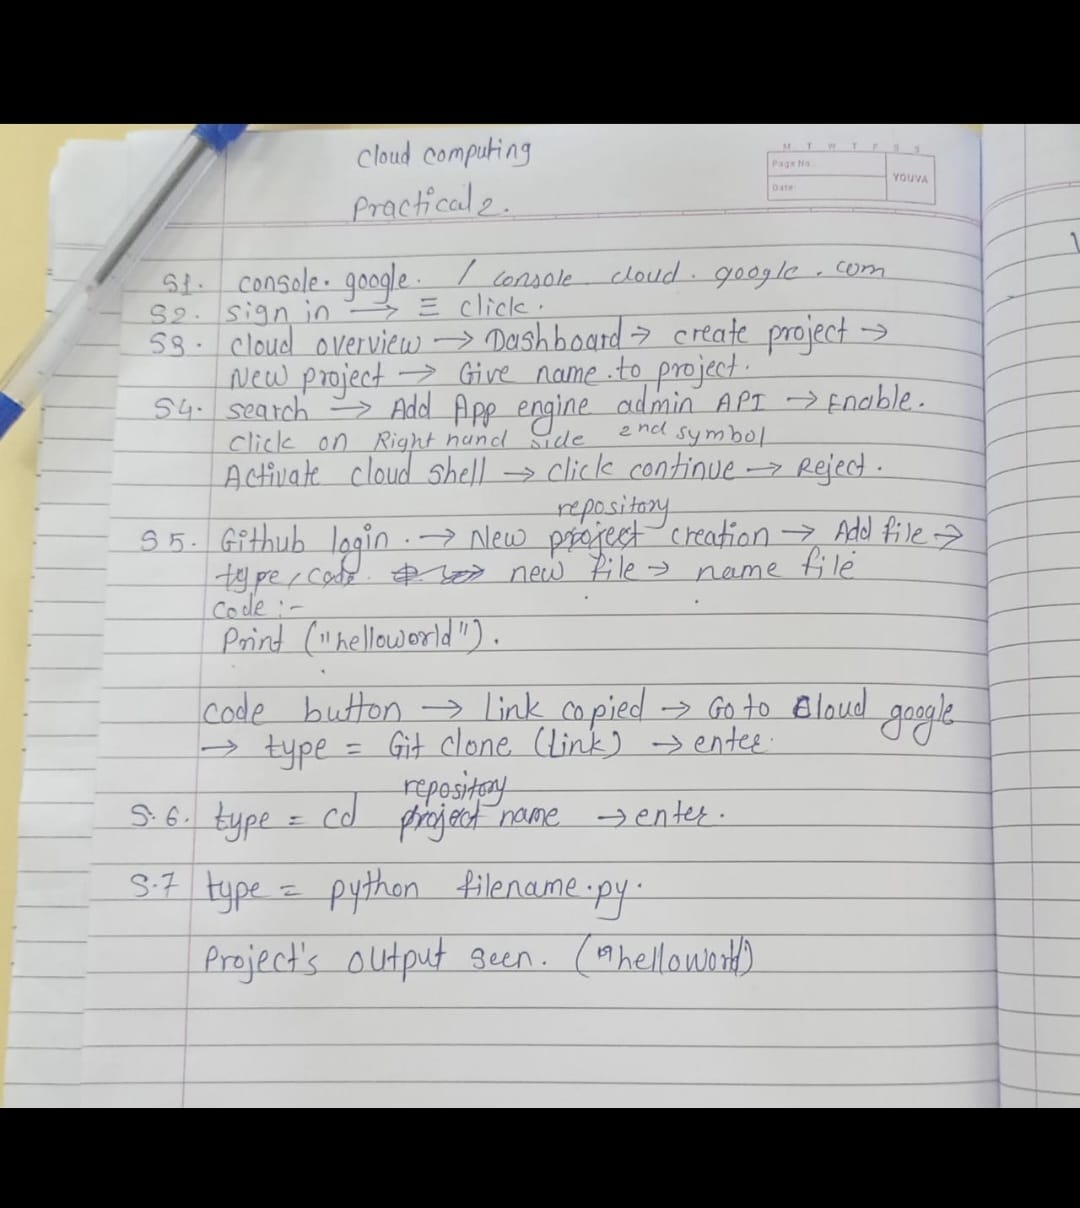 cloud computing
Practical 2.
M T W T F S S
Page No.
Date:
YOUVA
S1. console. google. / console cloud. google. com
S2. sign in → ≡ click.
S3. cloud overview → Dashboard → create project →
New project → Give name to project.
S4. search → Add App engine admin API → Enable.
click on Right hand side 2nd symbol
Activate cloud shell → click continue → Reject.
repository
S5. Github login. → New project creation → Add file →
type, code. → new file → name file
code :-
Print ("helloworld").
code button → link copied → Go to cloud google
→ type = Git clone (link) → enter.
repository
S.6. type = cd project name → enter.
S.7 type = python filename.py.
Project's output seen. ("helloword)